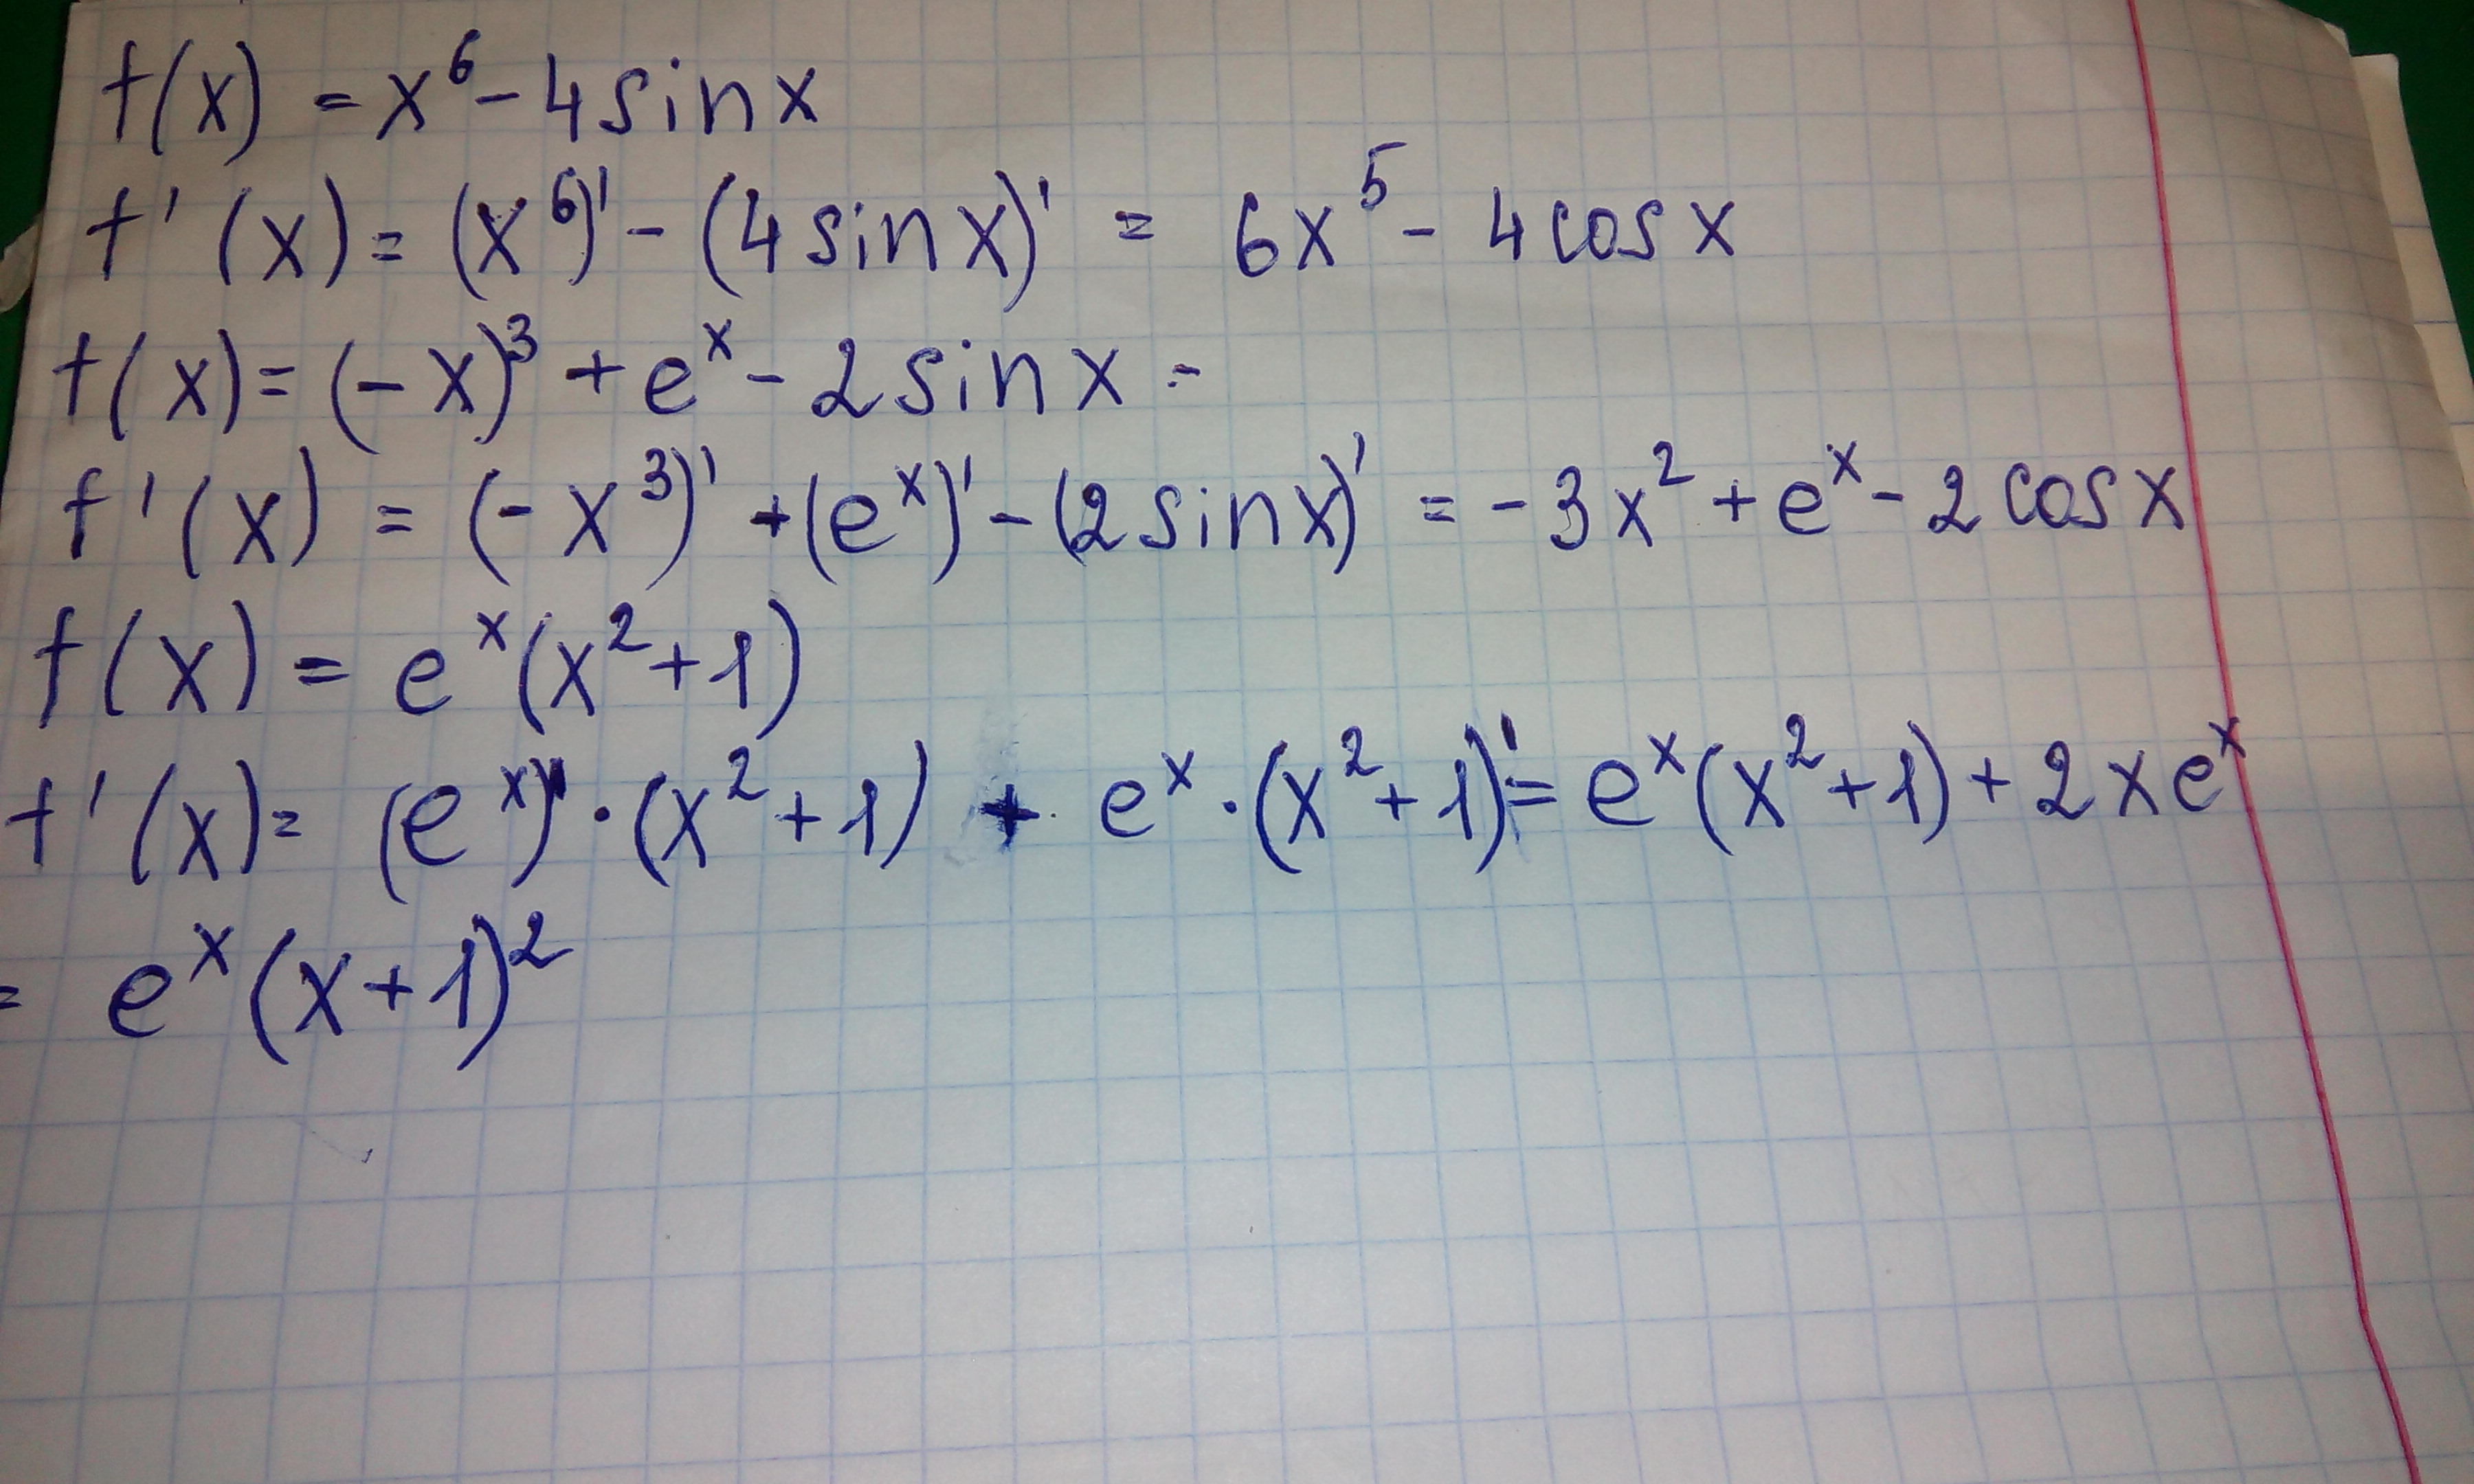 f(x) = x⁶ - 4sinx
f'(x) = (x⁶)' - (4sinx)' = 6x⁵ - 4cosx
f(x) = (-x)³ + eˣ - 2sinx -
f'(x) = (-x³)' + (eˣ)' - (2sinx)' = -3x² + eˣ - 2cosx
f(x) = eˣ(x²+1)
f'(x) = (eˣ)' · (x²+1) + eˣ · (x²+1)' = eˣ(x²+1) + 2xeˣ
= eˣ(x+1)²